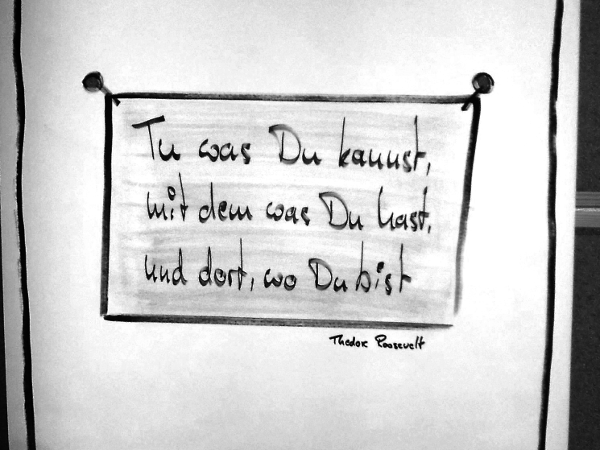 Tu was Du kannst,
mit dem was Du hast,
und dort, wo Du bist
Theodor Roosevelt